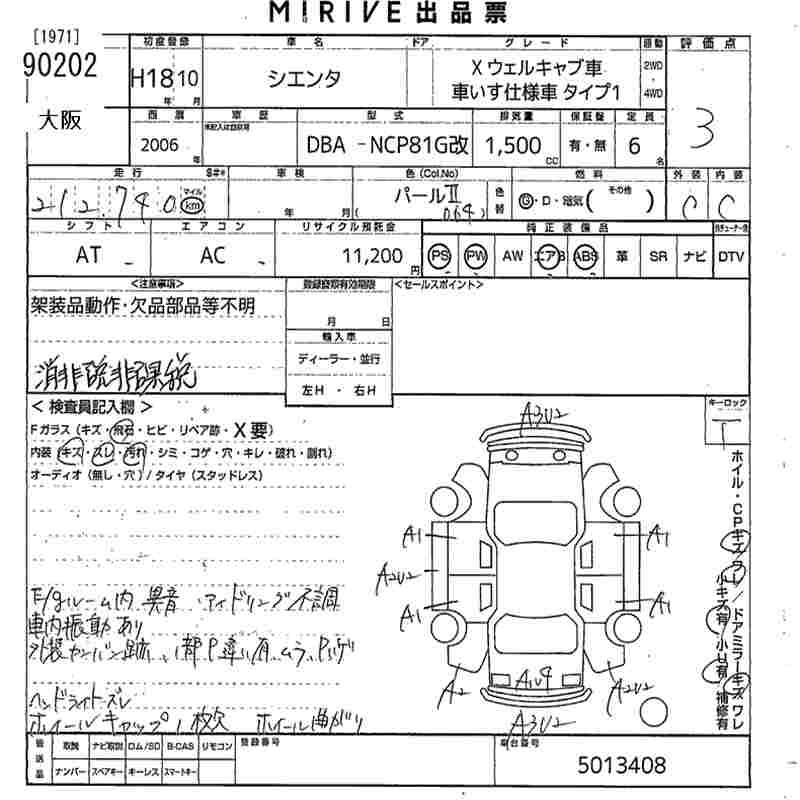 MIRIVE 出品票
[1971]
90202
大阪
初度登録 車名 ドア グレード 駆動 評価点
H18 10 年 月
シエンタ
X ウェルキャブ車
車いす仕様車 タイプ1
2WD
4WD
3
西暦 車歴 型式 排気量 保証書 定員
2006 年
DBA - NCP81G改
1,500 CC
有・無
6 名
走行 車検 色(Col.No) 燃料 外装 内装
212,740 マイル km
年 月
パールⅡ
(064)
色替
G・D・電気( その他 )
C C
シフト エアコン リサイクル預託金 純正装備品
AT - AC - 11,200 円
PS PW AW エアB ABS 革 SR ナビ DTV
<注意事項>
架装品動作・欠品部品等不明
消非税非課税
登録書類有効期限
月 日
輸入車
ディーラー・並行
左H ・ 右H
<セールスポイント>
<検査員記入欄>
Fガラス(キズ・飛石・ヒビ・リペア跡・X要)
内装(キズ・スレ・汚れ・シミ・コゲ・穴・キレ・破れ・割れ)
オーディオ(無し・穴)/タイヤ(スタッドレス)
E/gルーム内 異音 アイドリング不調
車内振動あり
外装カンバン跡 小部P違い有 ムラ Pハゲ
ヘッドライトズレ
ホイールキャップ1枚欠 ホイール曲がり
キーロック
T
A3U2
A1
A1
A2U2
A1
A1
A2
A1U4
A2U2
A3U2
ホイル・CPキズ/ワレ/ドアミラーキズ ワレ
小キズ有/小U有 補修有
備送品
取説 ナビ取説 ロム/SD B-CAS リモコン
ナンバー スペアキー キーレス スマートキー
登録番号
車台番号
5013408